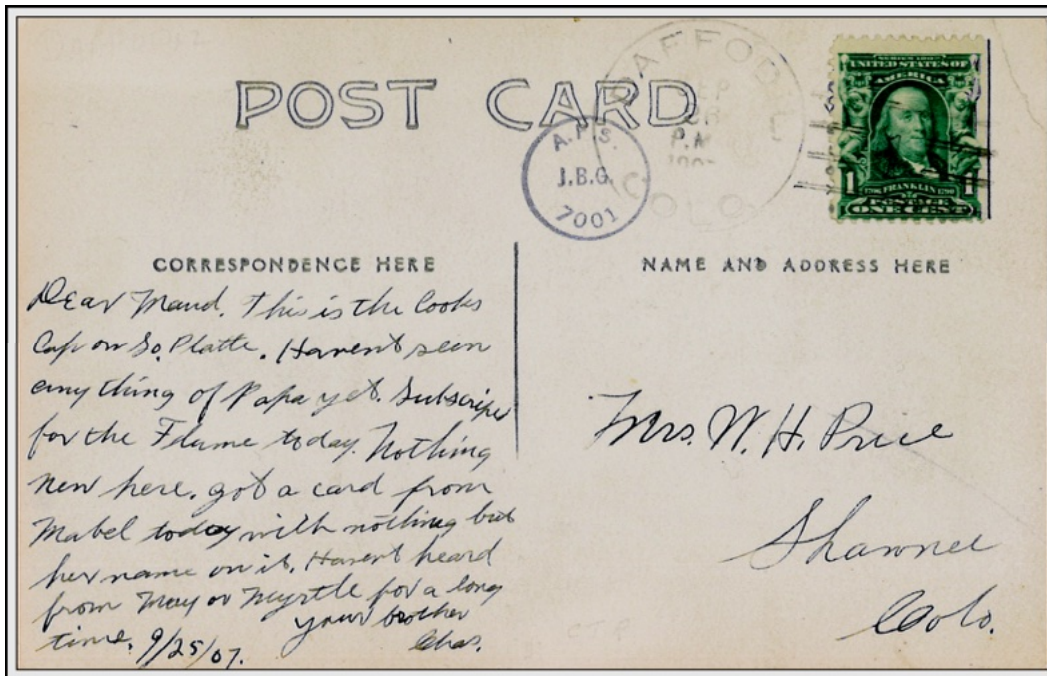 POST CARD
SAFFORD
SEP
P.M.
COLO.
A.P.S.
J.B.G.
7001
SERIES 1902
UNITED STATES OF
AMERICA
1 FRANKLIN 1
POSTAGE
ONE CENT
CORRESPONDENCE HERE
Dear Maud. This is the Cooks
on So. Platte. Havent seen
any thing of Papa yet. Subscripe
for the Flume today. Nothing
new here. got a card from
Mabel today with nothing but
her name on it. Havent heard
from May or Myrtle for a long
time. your brother
9/25/07. Chas.
NAME AND ADDRESS HERE
Mrs. W. H. Price
Shawnee
Colo.